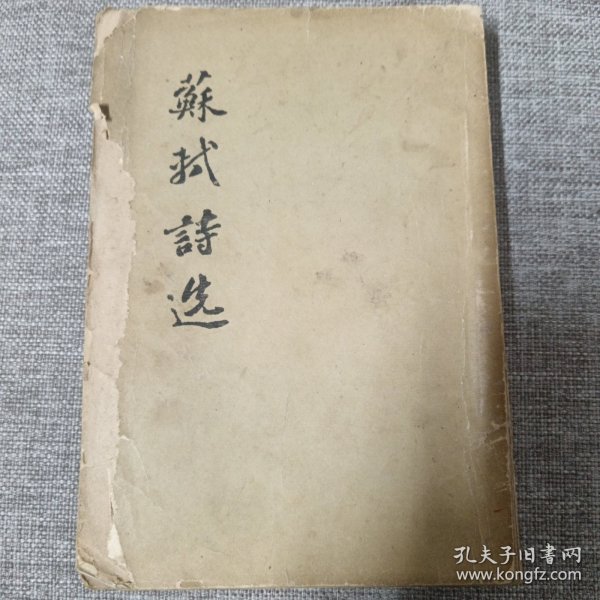 蘇軾詩选
孔夫子旧书网
www.kongfz.com